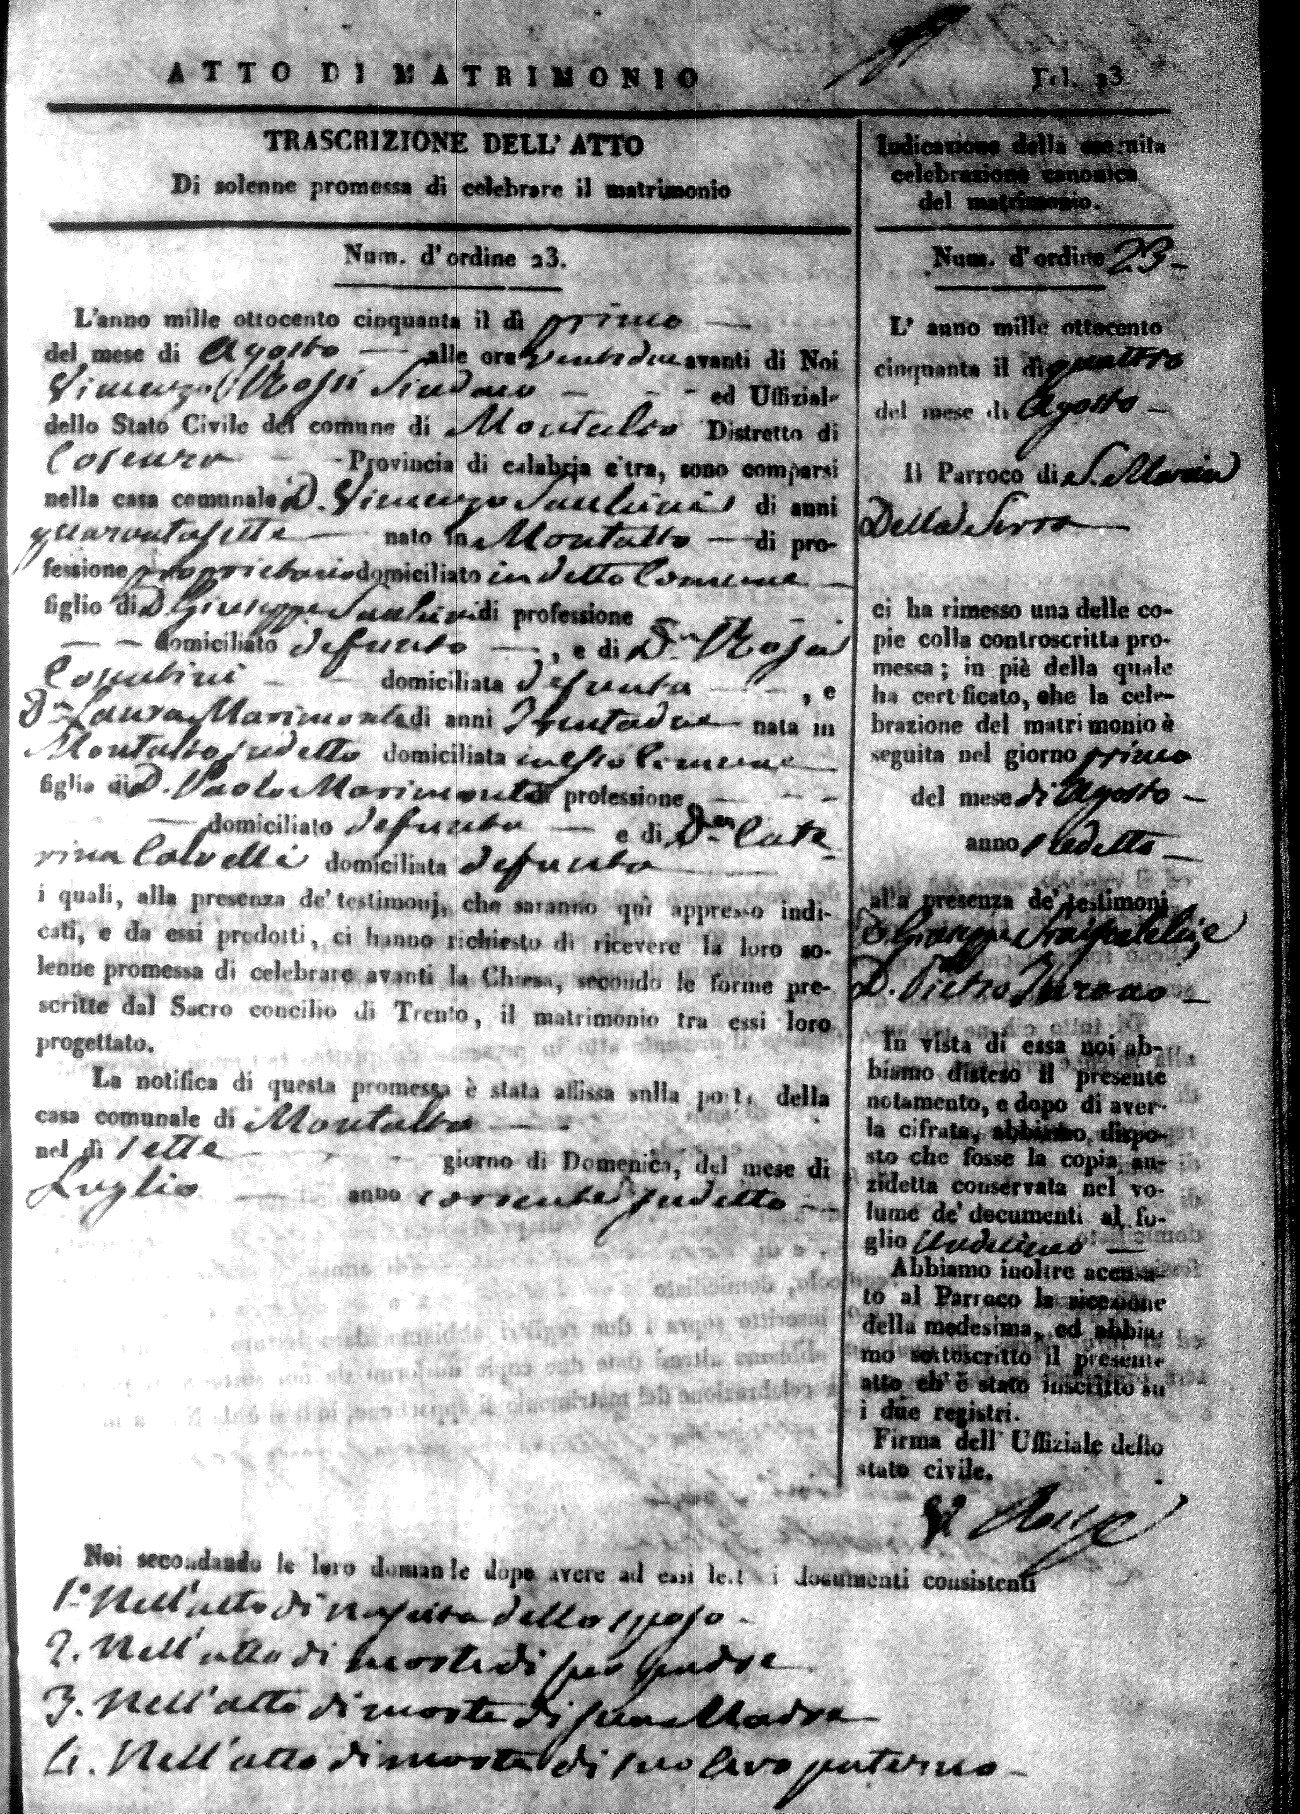 ATTO DI MATRIMONIO
Fol. 23
TRASCRIZIONE DELL' ATTO
Di solenne promessa di celebrare il matrimonio
Num. d' ordine 23.
L'anno mille ottocento cinquanta il dì primo
del mese di Agosto alle ore ventidue avanti di Noi
Vincenzo Rossi Sindaco ed Uffiziale
dello Stato Civile del comune di Montalto Distretto di
Cosenza Provincia di calabria citra, sono comparsi
nella casa comunale D. Vincenzo di anni
quarantasette nato in Montalto di pro-
fessione proprietario domiciliato in detto Comune
figlio di D. Giuseppe di professione
domiciliato defunto , e di D.a Rosa
domiciliata defunta , e
D.a Laura Marimonte di anni Trentadue nata in
Montalto sudetto domiciliata in esso Comune
figlia di D. Paolo Marimonte di professione
domiciliato defunto e di D.a Cate
rina Calvelli domiciliata defunta
i quali, alla presenza de' testimonj, che saranno quì appresso indi-
cati, e da essi prodotti, ci hanno richiesto di ricevere la loro so-
lenne promessa di celebrare avanti la Chiesa, secondo le forme pre-
scritte dal Sacro concilio di Trento, il matrimonio tra essi loro
progettato.
La notifica di questa promessa è stata affissa sulla porta della
casa comunale di Montalto
nel dì sette giorno di Domenica, del mese di
Luglio anno corrente sudetto
Indicazione della seguita
celebrazione canonica
del matrimonio.
Num. d' ordine 23
L' anno mille ottocento
cinquanta il dì quattro
del mese di Agosto
Il Parroco di S. Maria
Della Serra
ci ha rimesso una delle co-
pie colla controscritta pro-
messa; in piè della quale
ha certificato, che la cele-
brazione del matrimonio è
seguita nel giorno primo
del mese di Agosto
anno sudetto
alla presenza de' testimoni
D. Giuseppe
D. Pietro
In vista di essa noi ab-
biamo disteso il presente
notamento, e dopo di aver-
la cifrata, abbiamo dispo-
sto che fosse la copia an-
zidetta conservata nel vo-
lume de' documenti al fo-
glio undecimo
Abbiamo inoltre accusa-
to al Parroco la ricezione
della medesima, ed abbia-
mo sottoscritto il presente
atto ch' è stato inscritto su
i due registri.
Firma dell' Uffiziale dello
stato civile.
Noi secondando le loro domande dopo avere ad essi letti i documenti consistenti
1.° Nell'atto di nascita dello sposo
2. Nell'atto di morte di suo padre
3. Nell'atto di morte di sua Madre
4. Nell'atto di morte di suo Avo paterno